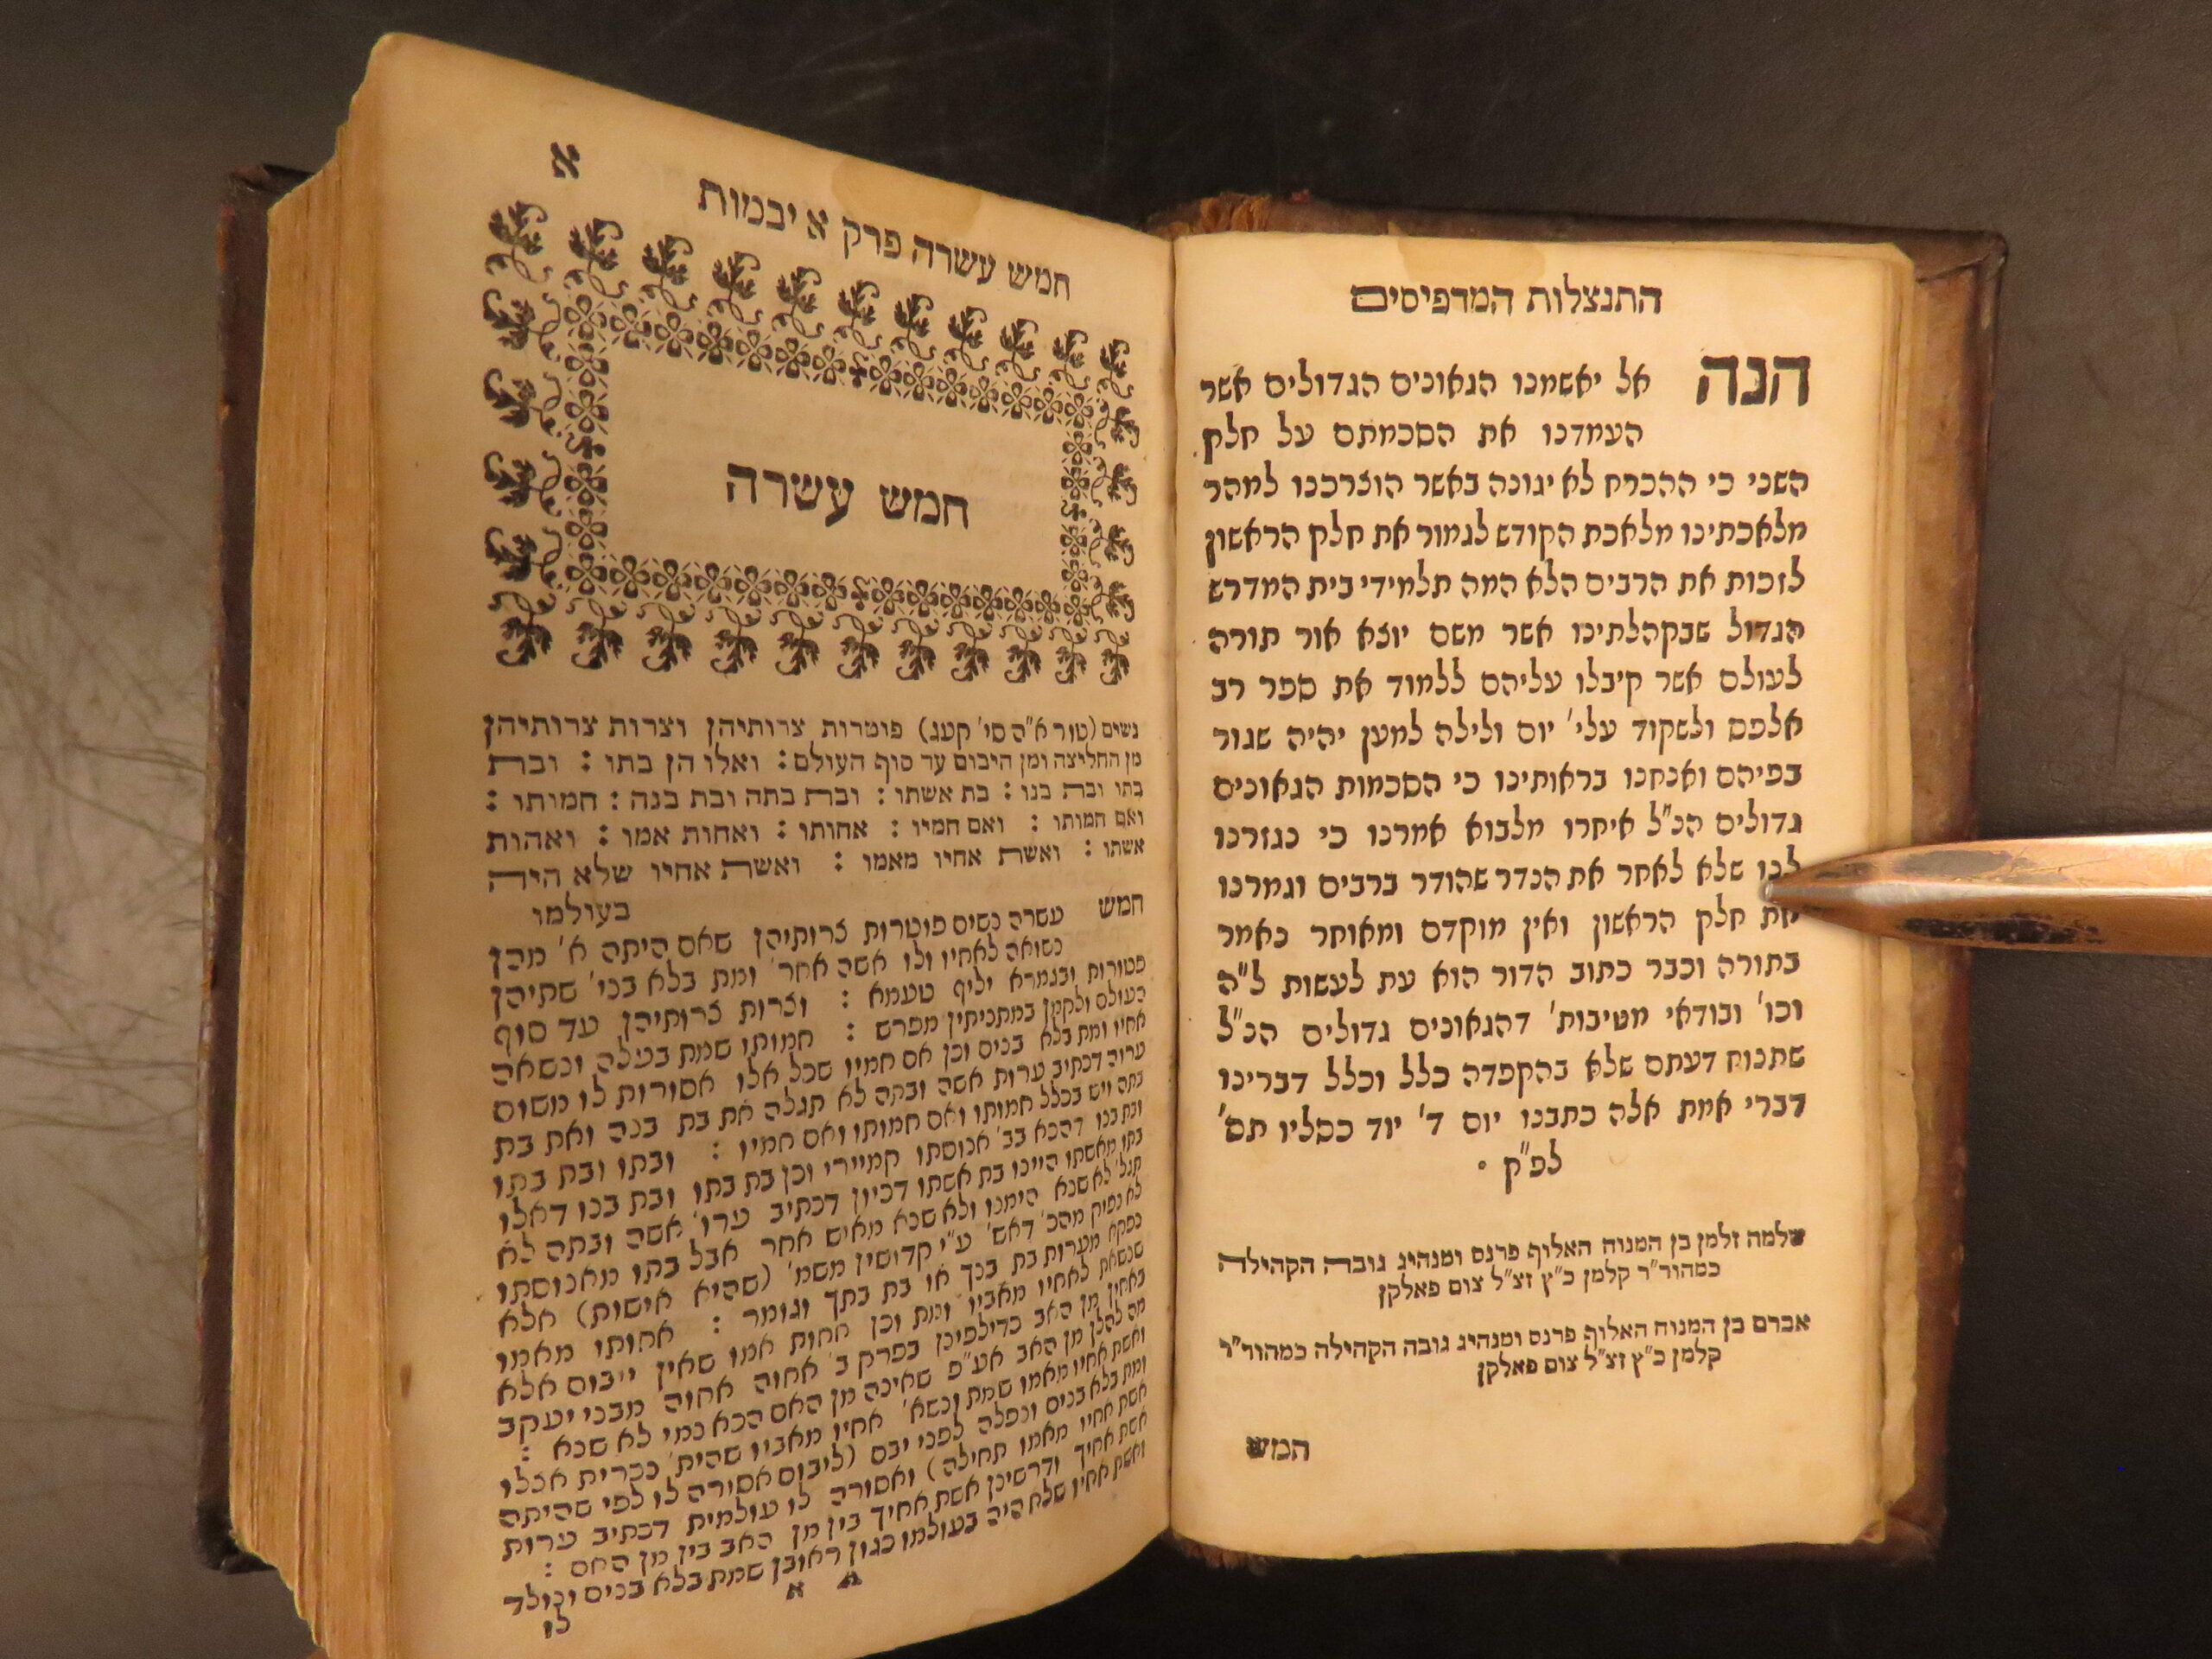 התנצלות המדפיסים
הנה אל יאשמנו הגאונים הגדולים אשר
העמדנו את הסכמתם על חלק
השני כי ההכרח לא יגונה באשר הוצרכנו למהר
מלאכתינו מלאכת הקודש לגמור את חלק הראשון
לזכות את הרבים הלא המה תלמידי בית המדרש
הגדול שבקהלתינו אשר משם יוצא אור תורה
לעולם אשר קיבלו עליהם ללמוד את ספר רב
אלפס ולשקוד עלי' יום ולילה למען יהיה שגור
בפיהם ואנחנו בראותינו כי הסכמות הגאונים
גדולים הנ"ל איחרו מלבוא אמרנו כי נגזרנו
לנו שלא לאחר את הנדר שהודר ברבים וגמרנו
את חלק הראשון ואין מוקדם ומאוחר כאמר
בתורה וכבר כתוב הדור הוא עת לעשות ל"ה
וכו' ובודאי מטיבות' דהגאונים גדולים הנ"ל
שתנוח דעתם שלא בהקפדה כלל וכלל דברינו
דברי אמת אלה כתבנו יום ד' יוד כסליו תס'
לפ"ק .
שלמה זלמן בן המנוח האלוף פרנס ומנהיג גובה הקהילה
כמהור"ר קלמן כ"ץ זצ"ל צום פאלקן
אברם בן המנוח האלוף פרנס ומנהיג גובה הקהילה כמהור"ר
קלמן כ"ץ זצ"ל צום פאלקן
המש
א
חמש עשרה פרק א יבמות
חמש עשרה
נשים (טור א"ה סי' קעג) פוטרות צרותיהן וצרות צרותיהן
מן החליצה ומן היבום עד סוף העולם : ואלו הן בתו : ובת
בתו ובת בנו : בת אשתו : ובת בתה ובת בנה : חמותו :
ואם חמותו : ואם חמיו : אחותו : ואחות אמו : ואהות
אשתו : ואשת אחיו מאמו : ואשת אחיו שלא היה
בעולמו
חמש עשרה נשים פוטרות צרותיהן שאם היתה א' מהן
נשואה לאחיו ולו אשה אחר' ומת בלא בני' שתיהן
פטורות ובגמרא יליף טעמא : וצרות צרותיהן עד סוף
העולם ולקמן במתניתין מפרש : חמותו שמת בעלה ונשאה
אחיו ומת בלא בנים וכן אם חמיו שכל אלו אסורות לו משום
ערוה דכתיב ערות אשה ובתה לא תגלה את בת בנה ואת בת
בתה ויש בכלל חמותו ואם חמותו ואם חמיו : ובתו ובת בתו
ובת בנו דהכא בב' אנוסתו קמיירי וכן בת בתו ובת בנו דאלו
בתו מאשתו היינו בת אשתו דכיון דכתיב ערו' אשה ובתה לא
תגל' לא שנא הימנו ולא שנא מאיש אחר אבל בתו מאנוסתו
לא נפיק מהכ' דאש' ע"י קדושין משמ' (שהיא אישות) אלא
נפקא מערות בת בנך או בת בתך וגומר : אחותו מאמו
שנשאת לאחיו מאביו ומת וכן אחות אמו שאין ייבום אלא
באחין מן האב כדילפינן בפרק ב' אחוה אחוה מבני יעקב
מה להלן מן האב אע"פ שאינה מן האם הכא נמי לא שנא :
ואשת אחיו מאמו שמת ונשא' אחיו מאביו שהית' נכרית אצלו
ומת בלא בנים ונפלה לפני יבם (ליבום אסורה לו לפי שהיתה
אשת אחיו מאמו תחילה) ואסורה לו עולמית דכתיב ערות
אשת אחיך ודרשינן אשת אחיך בין מן האב בין מן האם :
ואשת אחיו שלא היה בעולמו כגון ראובן שמת בלא בנים ונולד
א א
לו